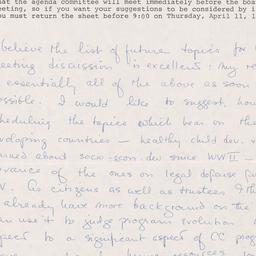 at the agenda committee will meet immediately before the boa
eting, so if you want your suggestions to be considered by i
ou must return the sheet before 9:00 on Thursday, April 11, 1
believe the list of future topics for
eeting discussion is excellent. My re
essentially all of the above as soon
ossible. I would like to suggest, how
heduling the topics which bear on the
veloping countries — healthy child dev.
rned about socio-econ. dev since WWII —
vance of the ones on legal defense fu
V. As citizens as well as trustees I th
already have more background on the
n use it to judge program evolution
spect to a significant aspect of CC prog